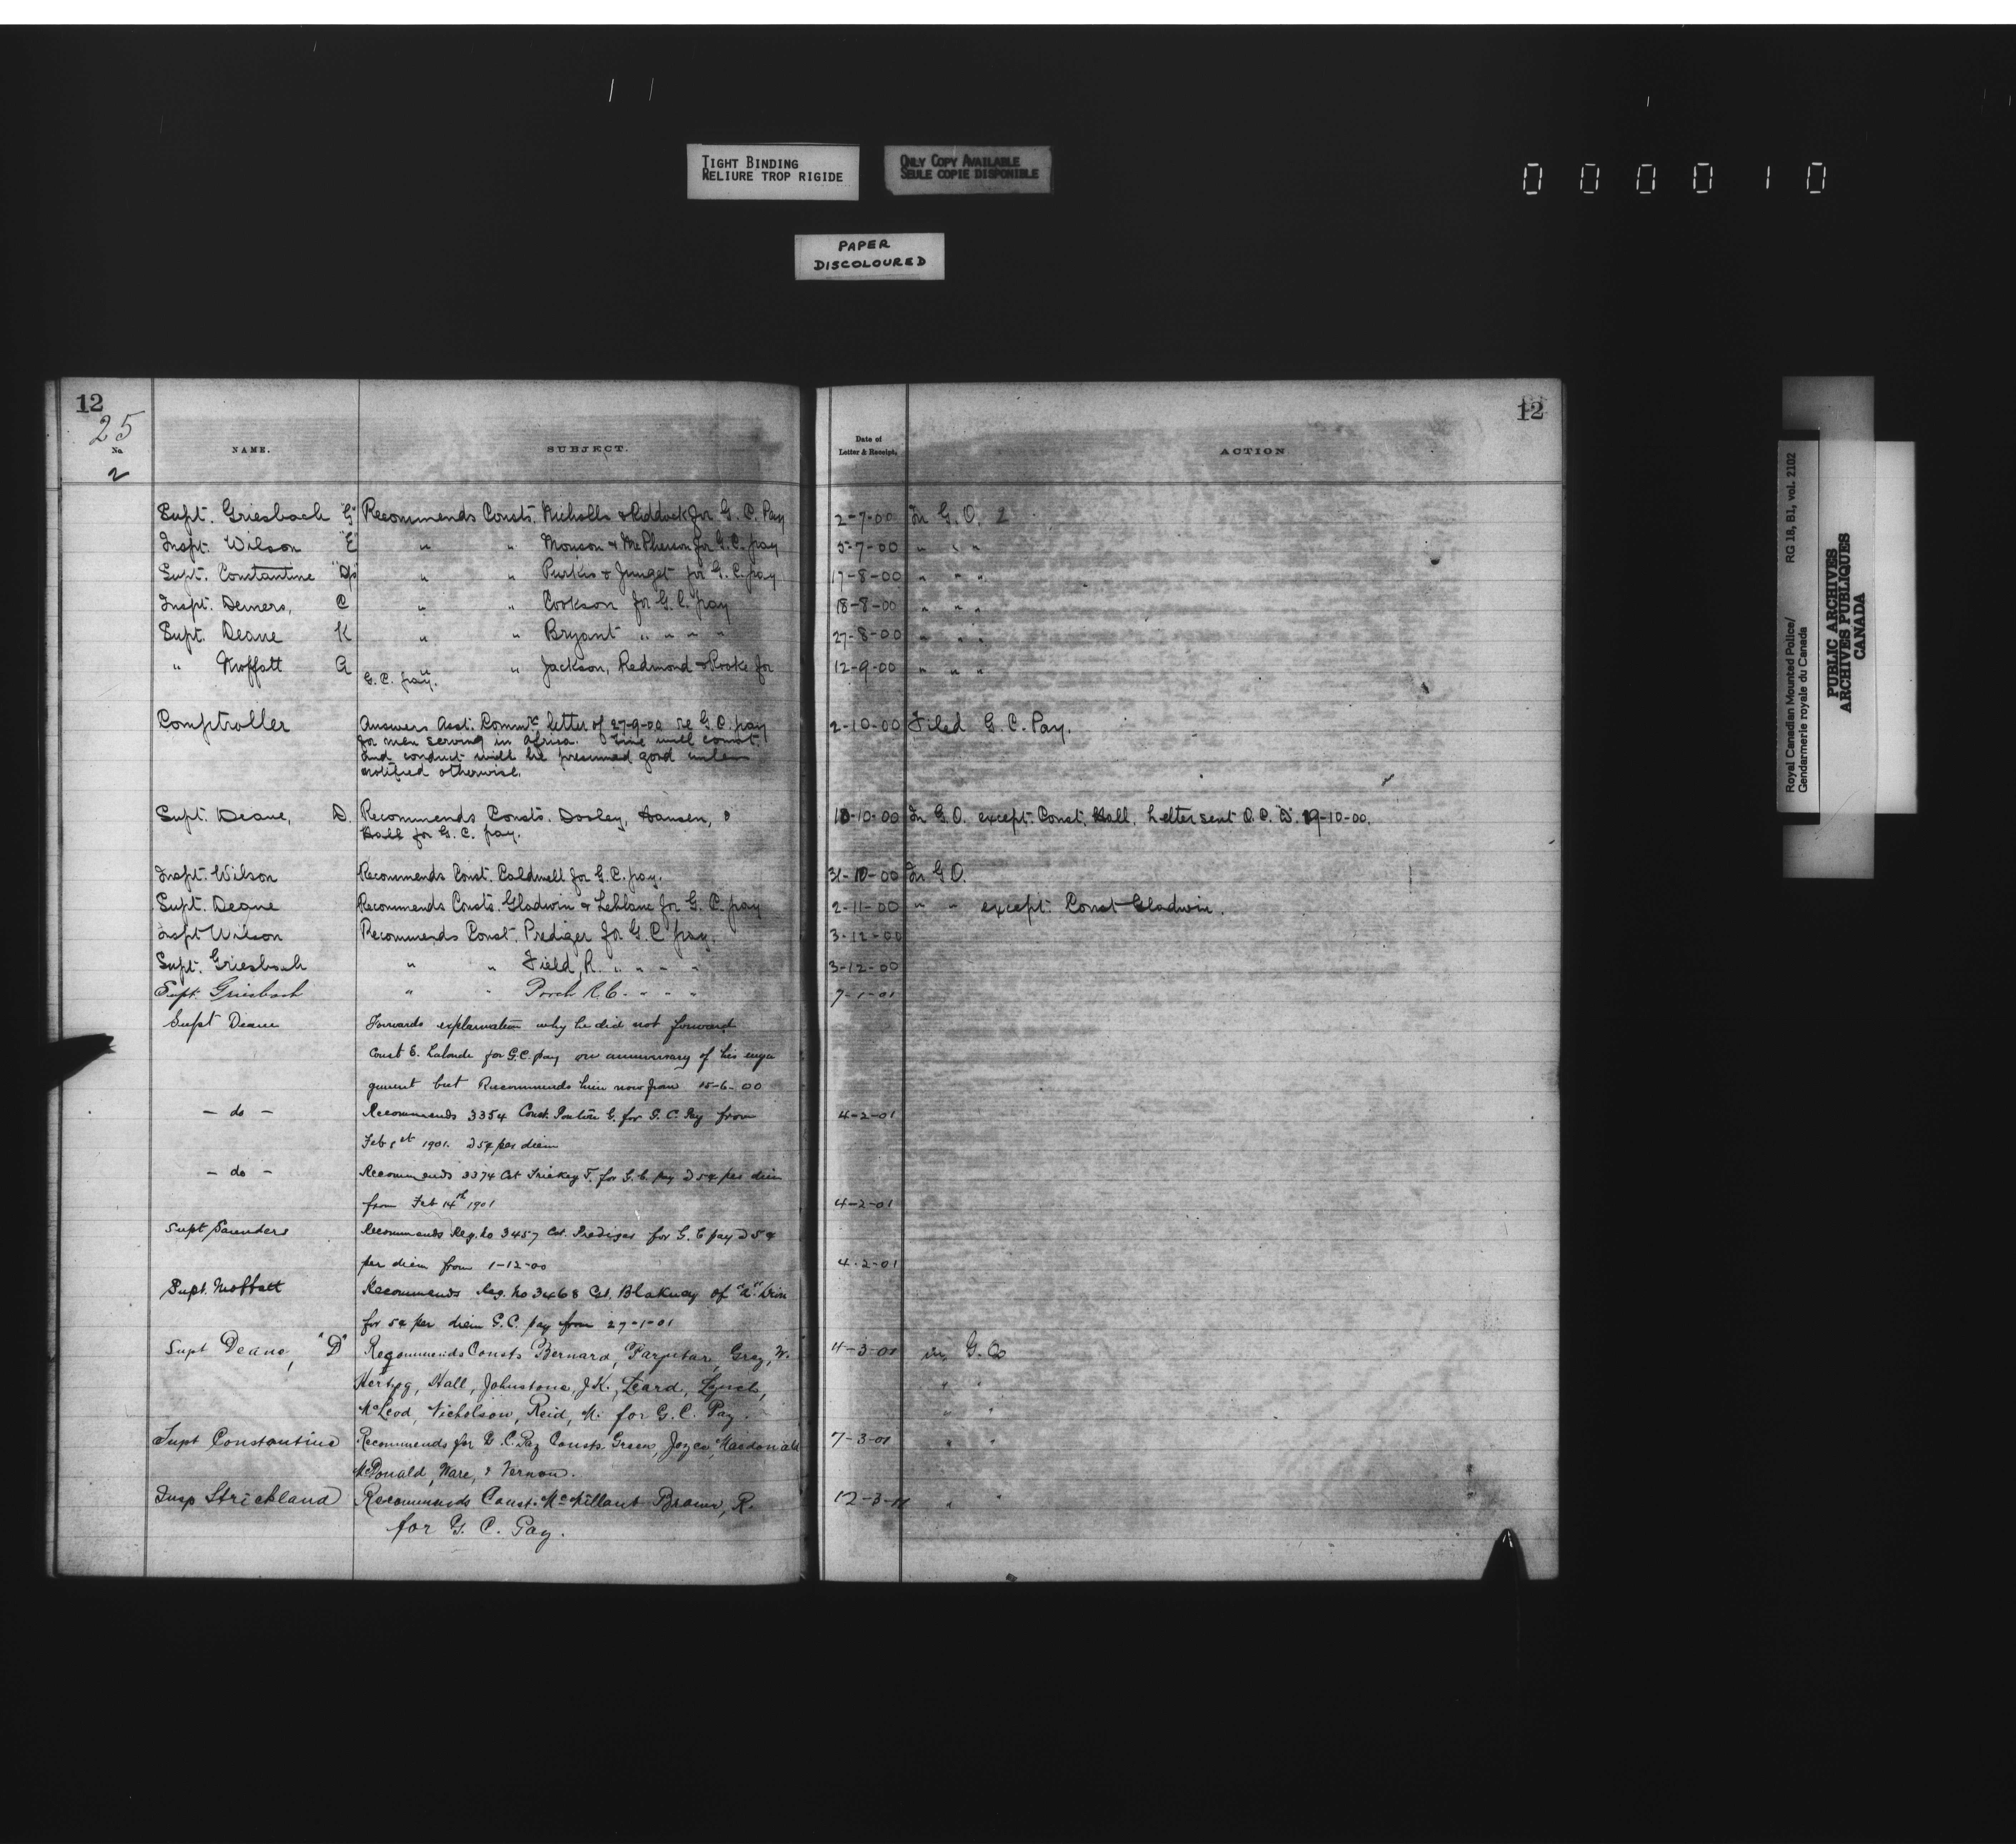 TIGHT BINDING
RELIURE TROP RIGIDE
ONLY COPY AVAILABLE
SEULE COPIE DISPONIBLE
000010
PAPER
DISCOLOURED
12
25
No.
2
NAME.
SUBJECT.
Date of
Letter & Receipt.
ACTION
12
Supt. Griesbach "G" Recommends Consts. Nicholls & Riddock for G. C. Pay 2-7-00 In G. O. 2
Inspt. Wilson "E" " " Monson & McPherson for G. C. pay 5-7-00 " " "
Supt. Constantine " " Purkis & Junget for G. C. pay 17-8-00 " " "
Inspt. Demers, C " " Cookson for G. C. pay 18-8-00 " " "
Supt. Deane K " " Bryant " " " " 27-8-00 " " "
" Moffatt A " " Jackson, Redmond & Rooke for 12-9-00 " " "
G. C. pay.
Comptroller Answers Asst. Commr. letter of 27-9-00 re G. C. pay 2-10-00 Filed G. C. Pay.
for men serving in Africa. Time will count
and conduct will be presumed good unless
notified otherwise.
Supt. Deane, D. Recommends Consts. Dooley, Hansen, & 18-10-00 In G. O. except Const. Hall, Letter sent O. C. "D". 19-10-00.
Hall for G. C. pay.
Inspt. Wilson Recommends Const. Caldwell for G. C. pay. 31-10-00 In G O.
Supt. Deane Recommends Consts. Gladwin & Leblanc for G. C. pay 2-11-00 " " except Const Gladwin.
Inspt Wilson Recommends Const. Prediger for G. C pay. 3-12-00
Supt. Griesbach " " Field, R. " " " " 3-12-00
Supt. Griesbach " " Porch R. C. " " " 7-1-01
Supt Deane Forwards explanation why he did not forward
Const E. Lalonde for G.C. pay on anniversary of his enga
gement but Recommends him now from 15-6-00
- do - Recommends 3354 Const. G. for G. C. Pay from 4-2-01
Feb 1st 1901. @ 5¢ per diem
- do - Recommends 3374 Cst Trickey T. for G. C. pay @ 5¢ per diem
from Feb 14th 1901 4-2-01
Supt Saunders Recommends Reg. No 3457 Cst. Prediger for G. C pay @ 5¢
per diem from 1-12-00 4-2-01
Supt. Moffatt Recommends Reg. No 3468 Cst. Blakney of "A" Divn
for 5¢ per diem G. C. pay from 27-1-01
Supt Deane, "D" Recommends Consts Bernard, Farquhar, Gray, W. 4-3-01 in G. O
Hertzog, Hall, Johnstone, J.K., Leard, Lynch, " "
McLeod, Nicholson, Reid, M. for G. C. Pay. " "
Supt Constantine Recommends for G. C. Pay Consts Green, Joyce, Macdonald 7-3-01 " "
McDonald, Ware, & Vernon.
Insp Strickland Recommends Const. McMillan & Brown, R. 12-3-01 " "
for G. C. Pay.
Royal Canadian Mounted Police/ RG 18, B1, vol. 2102
Gendarmerie royale du Canada
PUBLIC ARCHIVES
ARCHIVES PUBLIQUES
CANADA